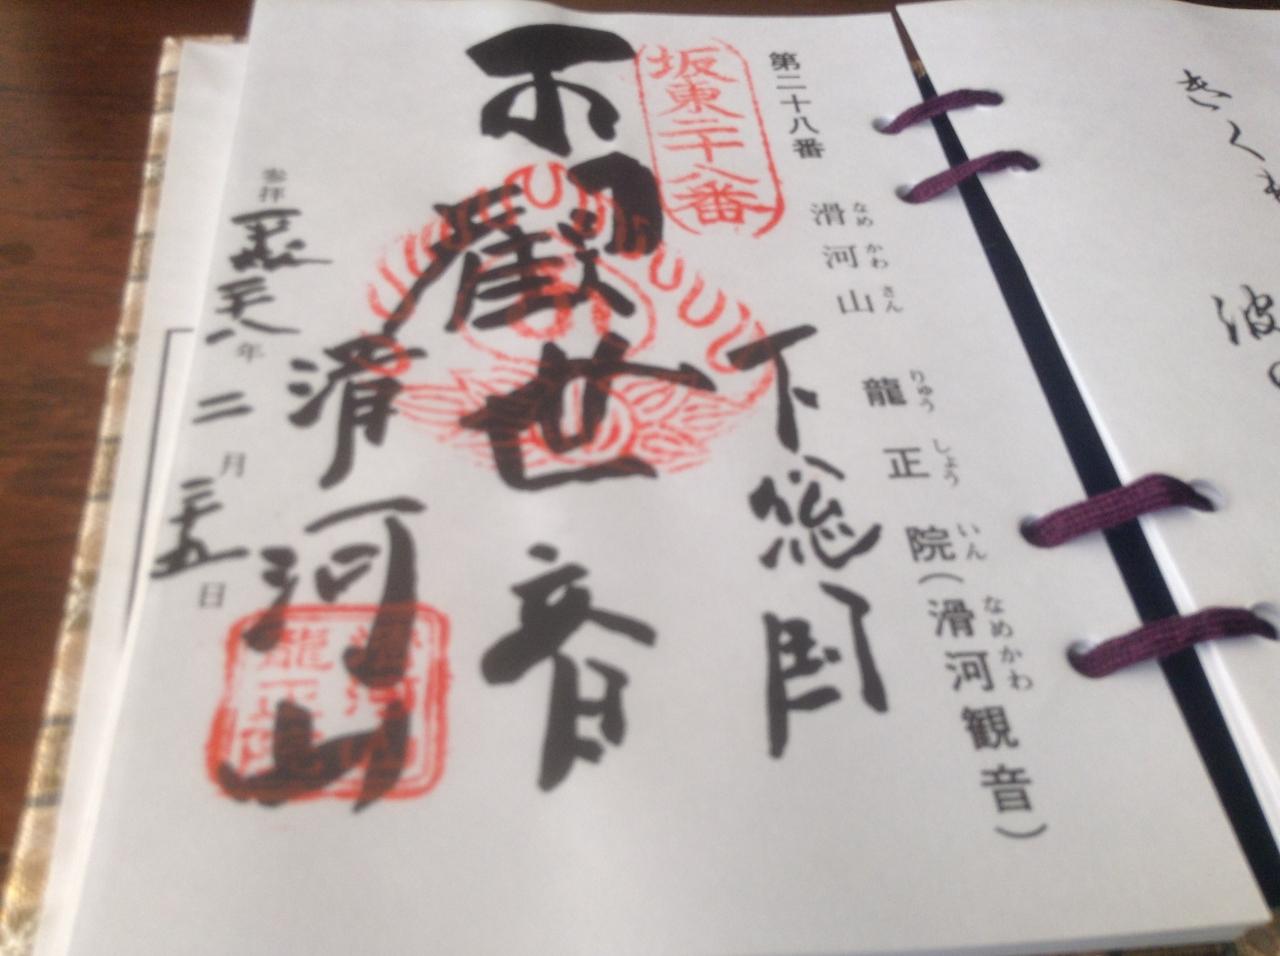 きく
波の
第二十八番　滑河山　龍正院（滑河観音）
なめかわさん　りゅうしょういん　なめかわ
坂東二十八番
下総国
観世音
滑河山
滑河山
龍正院
参拝 平成二十八年二月二十五日